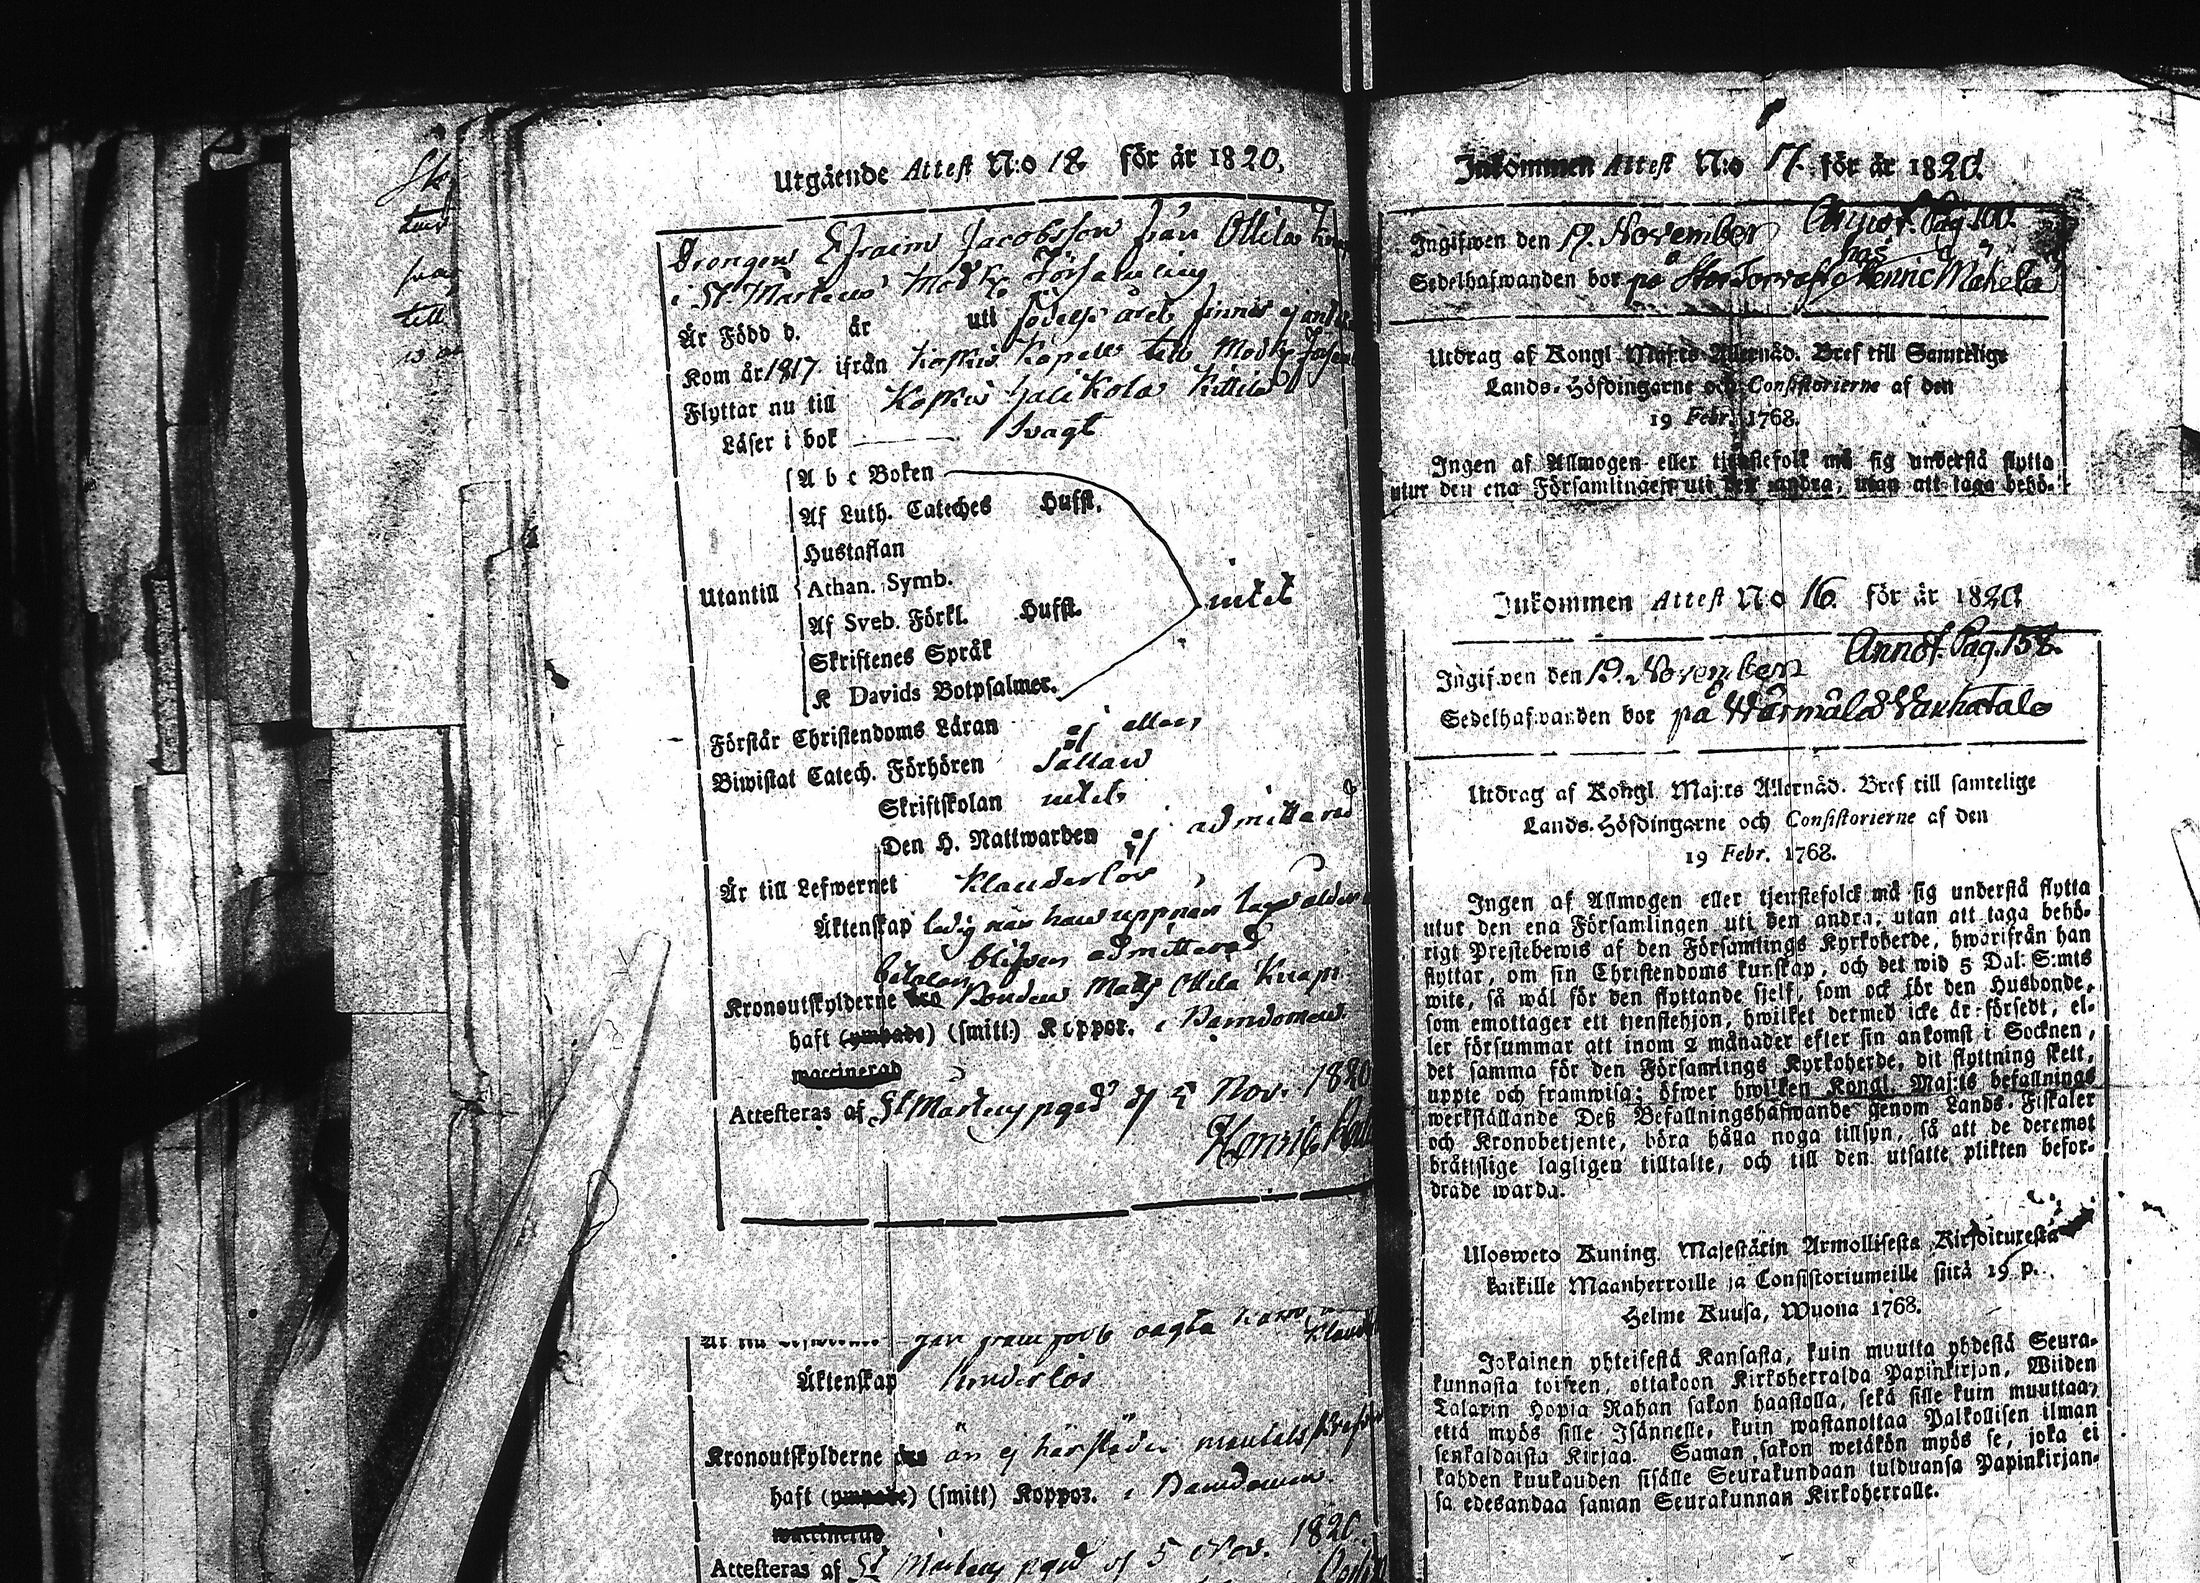 Utgående Attest N:o 18 för år 1820.
Drängen Efraim Jacobsson från Ottila
i St. Mårtens Modk. Församling
Är Född d. år uti födelse året finnes ej
Kom år 1817 ifrån Koskis Kapell till Modk.
Flyttar nu till Koskis Halikola Kittilä
Läser i bok svagt
A b c Boken
Af Luth. Cateches Hufst.
Hustaflan
Utantill Athan. Symb. intet
Af Sveb. Förkl. Hufst.
Skriftenes Språk
K Davids Botpsalmer.
Förstår Christendoms Läran ej eller
Biwistat Catech. Förhören sällan
Skriftskolan intet
Den H. Nattwarden ej admitterad
Är till Lefwernet Klanderlös
Äktenskap ledig när han uppnår laga ålder
blifven admitterad
Kronoutskylderne betalar Bonden Matts Ottila Knapi
haft (ympade) (smitt.) Koppor. i Barndomen
waccinerad
Attesteras af St Mårtens pgd d 5 Nov. 1820
Henric
Äktenskap hinderlös
Kronoutskylderne än ej härstädes
haft (ympade) (smitt) Koppor. i Barndomen
waccinerad
Attesteras af St Mårtens pgd d 5 Nov. 1820.
Inkommen Attest N:o 17. för år 1820.
Annot. Pag. 100.
Ingifwen den 19. November
hos
Sedelhafwanden bor på Henric Mäkelä
Utdrag af Kongl. Maj:ts Allernåd. Bref till Samtelige
Lands-Höfdingarne och Consistorierne af den
19 Febr. 1768.
Ingen af Allmogen eller tjenstefolk må sig understå flytta
utur den ena Församlingen uti den andra, utan att taga behö-
Inkommen Attest N:o 16. för år 1820.
Annot. Pag. 158.
Ingifwen den 19. November
Sedelhafwanden bor på Wärmälä Vanhatalo
Utdrag af Kongl. Maj:ts Allernåd. Bref till samtelige
Lands-Höfdingarne och Consistorierne af den
19 Febr. 1768.
Ingen af Allmogen eller tjenstefolck må sig understå flytta
utur den ena Församlingen uti den andra, utan att taga behö-
rigt Prestebewis af den Församlings Kyrkoherde, hwarifrån han
flyttar, om sin Christendoms kunskap, och det wid 5 Dal: S:mts
wite, så wäl för den flyttande sjelf, som ock för den Husbonde,
som emottager ett tjenstehjon, hwilket dermed icke är försedt, el-
ler försummar att inom 2 månader efter sin ankomst i Socknen,
det samma för den Församlings Kyrkoherde, dit flyttning skett,
uppte och framwisa; öfwer hwilken Kongl. Maj:ts befallnings
werkställande Deß Befallningshafwande genom Lands-Fiskaler
och Kronobetjente, böra hålla noga tillsyn, så att de deremot
bråttslige lagligen tilltalte, och till den utsatte plikten befor-
drade warda.
Ulosweto Kuning. Majestätin Armollisesta Kirjoituxesta
kaikille Maanherroille ja Consistoriumeille siitä 19 p.
Helme Kuusa, Wuona 1768.
Jokainen yhteisestä Kansasta, kuin muutta yhdestä Seura-
kunnasta toiseen, ottakoon Kirkoherralda Papinkirjan, Wiiden
Talarin Hopia Rahan sakon haastolla, sekä sille kuin muuttaa,
että myös sille Isännelle, kuin wastanottaa Palkollisen ilman
senkaldaista Kirjaa. Saman sakon wetäkön myös se, joka ei
kahden kuukauden sisälle Seurakundaan tulduansa Papinkirjan-
sa edesandaa saman Seurakunnan Kirkoherralle.